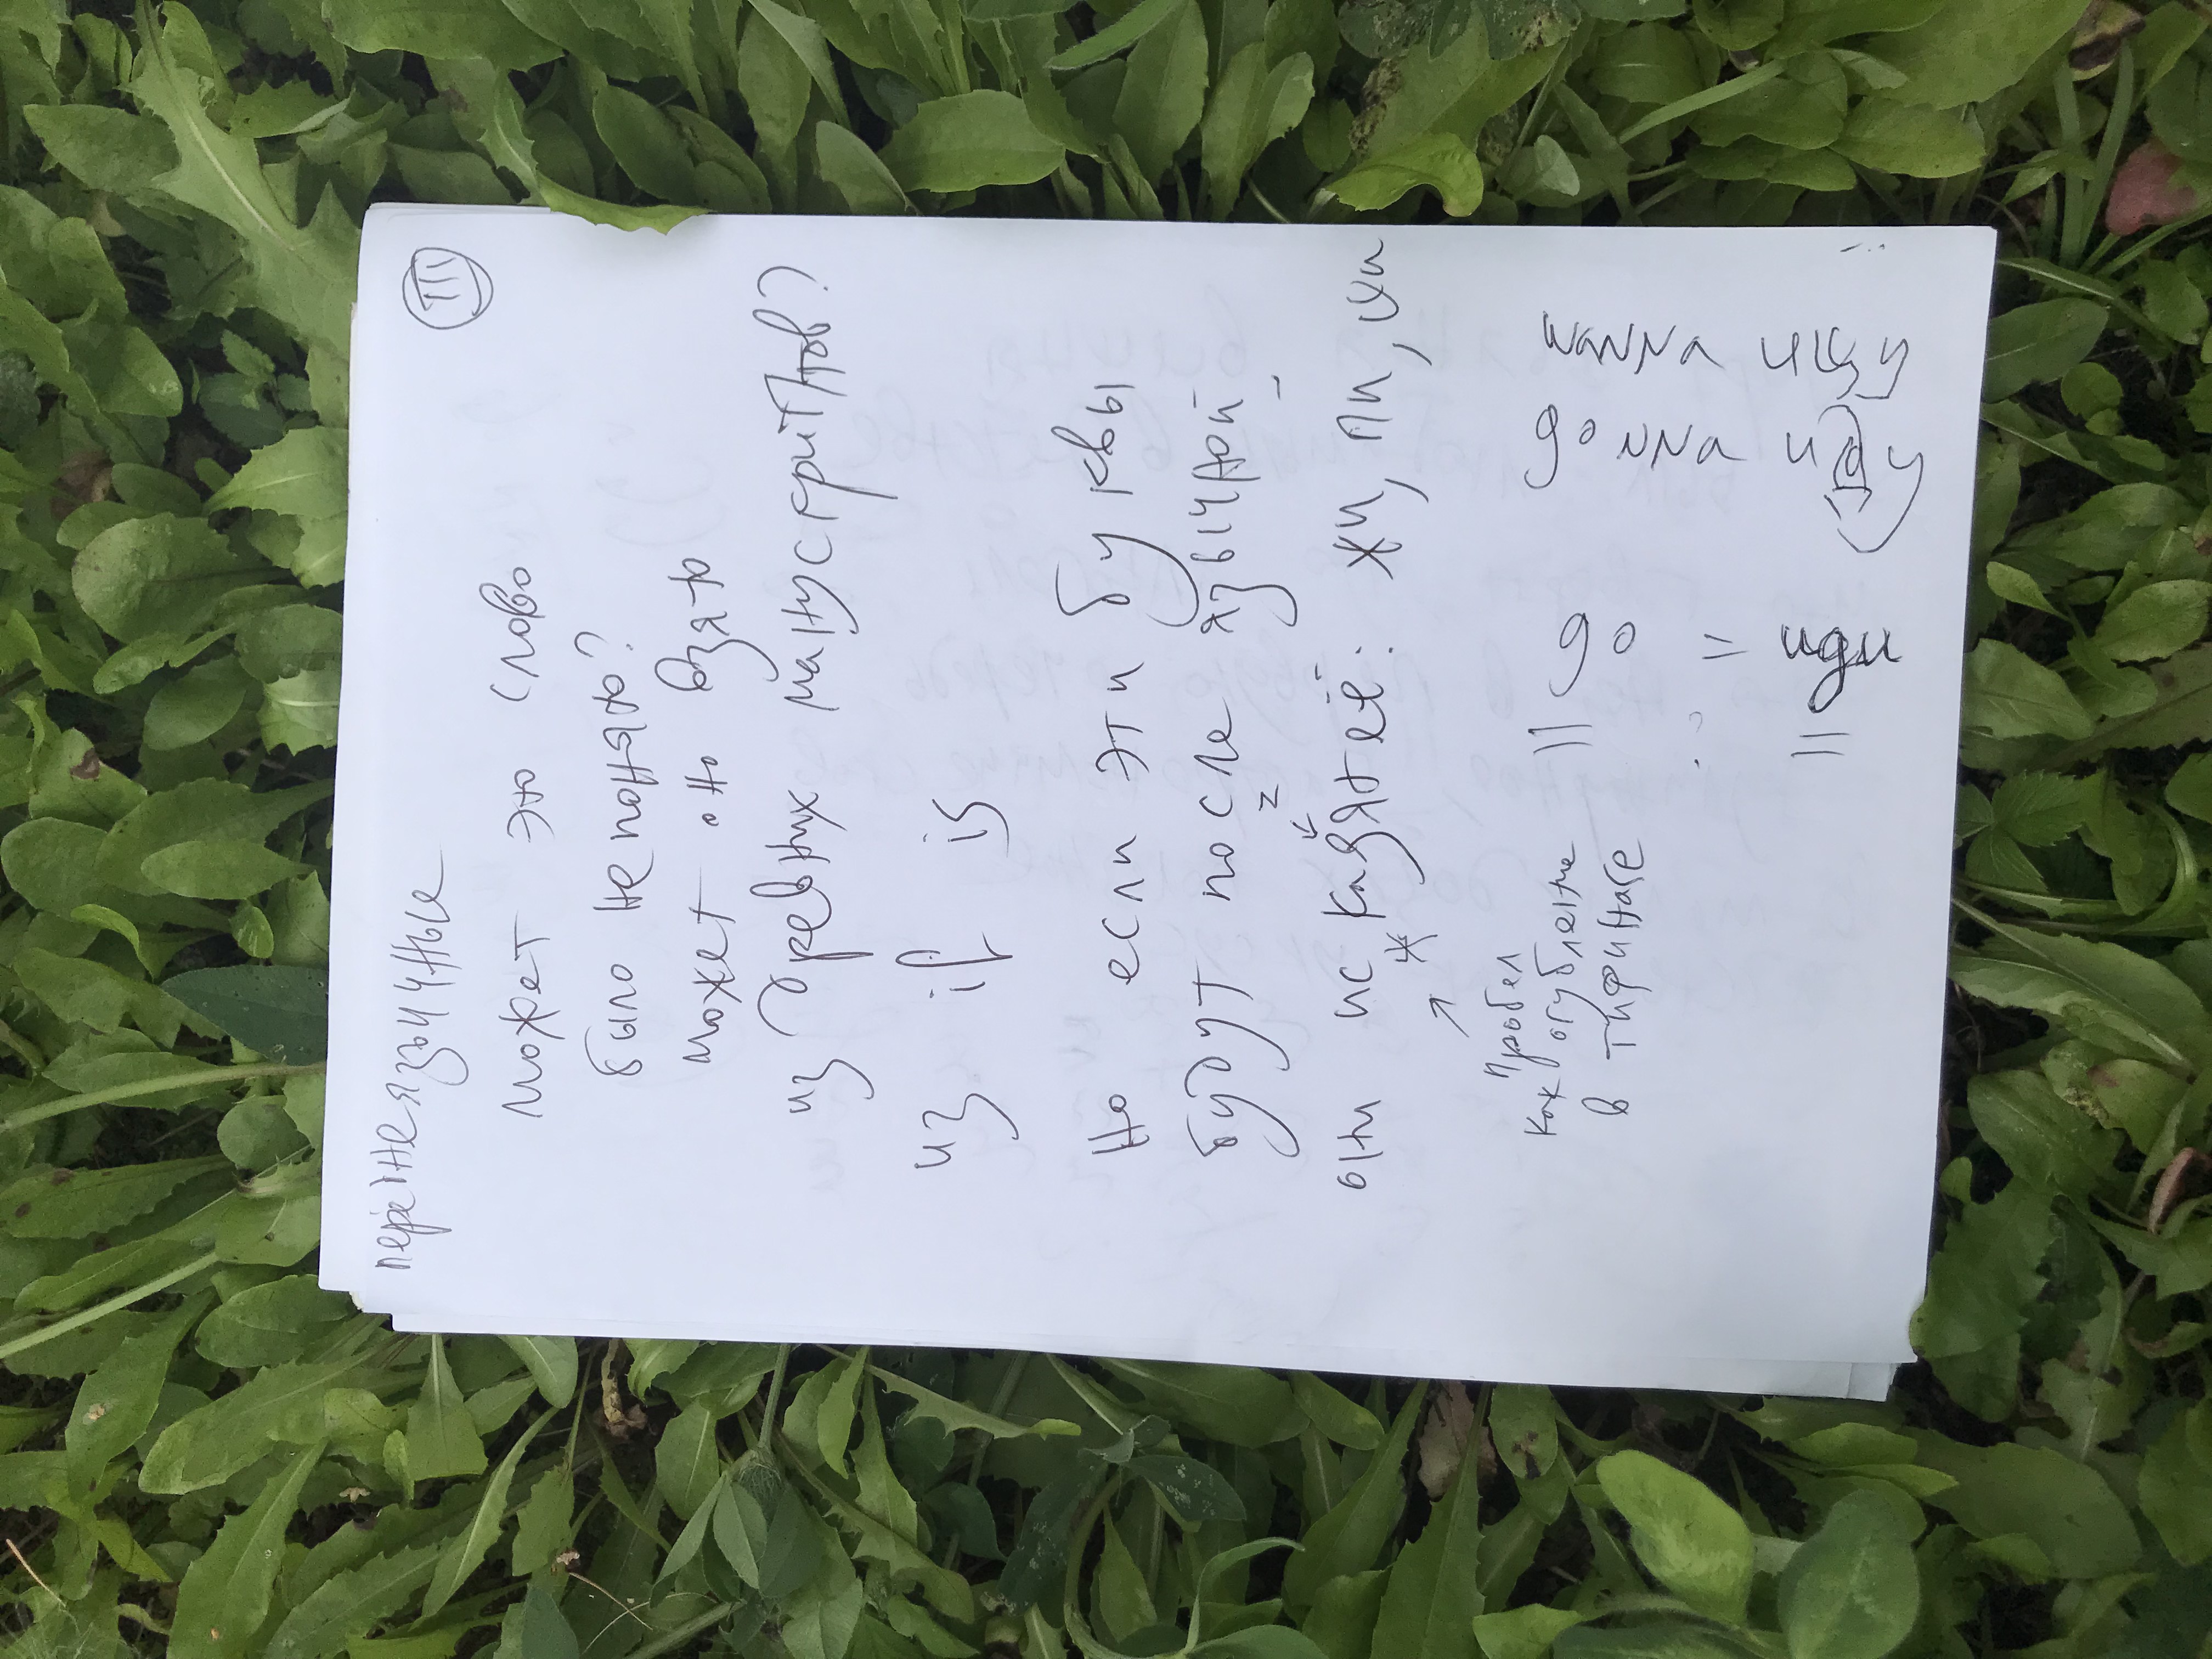 переднеязычные
III
может это слово
было не понято?
может оно взято
из древних манускриптов?
из if is
но если эти буквы
будут после язычной
z
они исказят её: жи, пи, хи
ж
пробел
как огубление
в тифинаге
wanna ищу
gonna иду
go = иди
= =